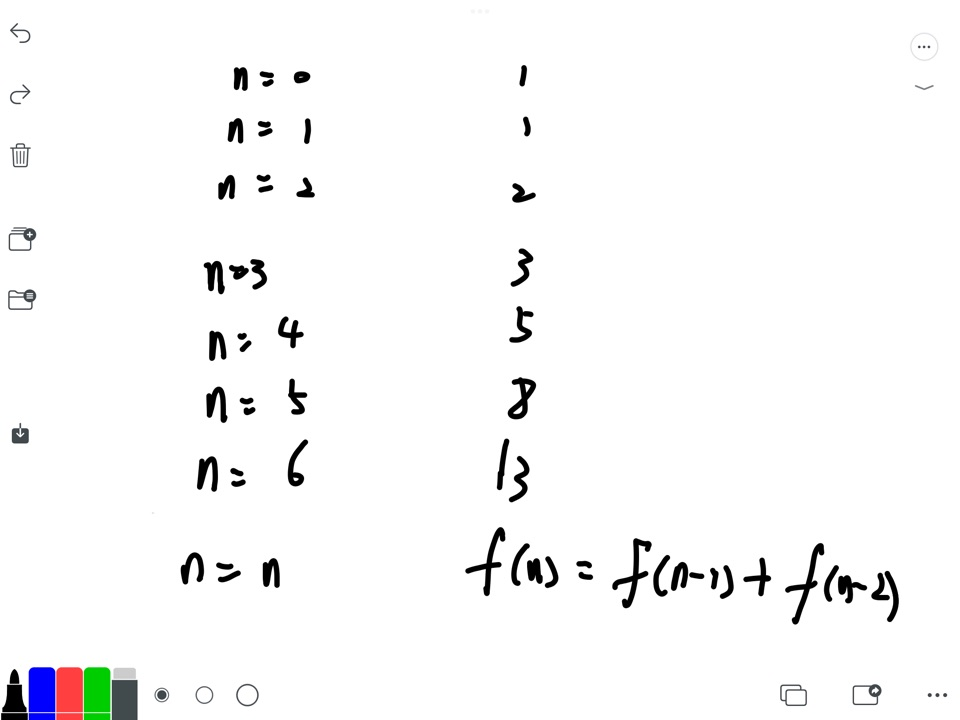 n = 0 1
n = 1 1
n = 2 2
n=3 3
n = 4 5
n = 5 8
n = 6 13
n = n f(n) = f(n-1) + f(n-2)